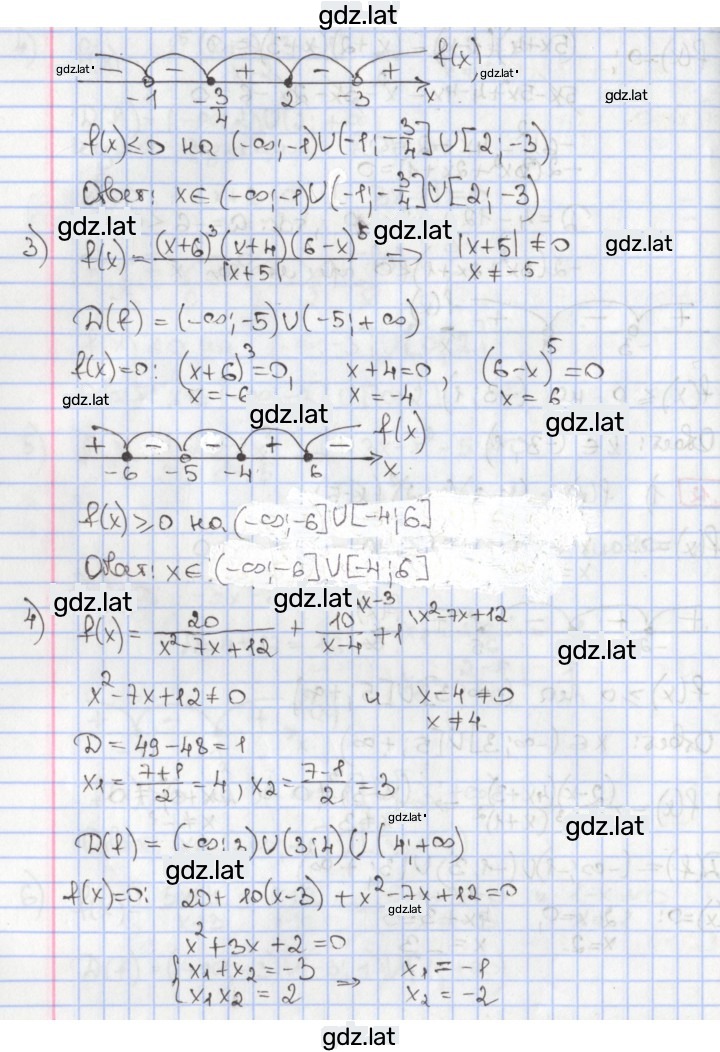 gdz.lat
gdz.lat - - + - + f(x) gdz.lat
-1 -3/4 2 -3 x gdz.lat
f(x)≤0 на (-∞;-1)∪(-1;-3/4]∪[2;-3)
Ответ: x∈(-∞;-1)∪(-1;-3/4]∪[2;-3)
gdz.lat gdz.lat gdz.lat
3) f(x)=(x+6)³(x+4)(6-x)⁵/|x+5| => |x+5|≠0
x≠-5
D(f)=(-∞;-5)∪(-5;+∞)
f(x)=0: (x+6)³=0, x+4=0, (6-x)⁵=0
gdz.lat x=-6 x=-4 x=6
gdz.lat gdz.lat
+ - - + - f(x)
-6 -5 -4 6 x
f(x)≥0 на (-∞;-6]∪[-4;6]
Ответ: x∈(-∞;-6]∪[-4;6]
gdz.lat gdz.lat
4) f(x)=20/(x²-7x+12) + 10\x-3/(x-4) + 1\x²-7x+12
gdz.lat
x²-7x+12≠0 и x-4≠0
x≠4
D=49-48=1
x₁=(7+1)/2=4, x₂=(7-1)/2=3
gdz.lat gdz.lat
D(f)=(-∞;3)∪(3;4)∪(4;+∞)
gdz.lat
f(x)=0: 20+10(x-3)+x²-7x+12=0
gdz.lat
x²+3x+2=0
{x₁+x₂=-3 => x₁=-1
{x₁x₂=2 x₂=-2
gdz.lat